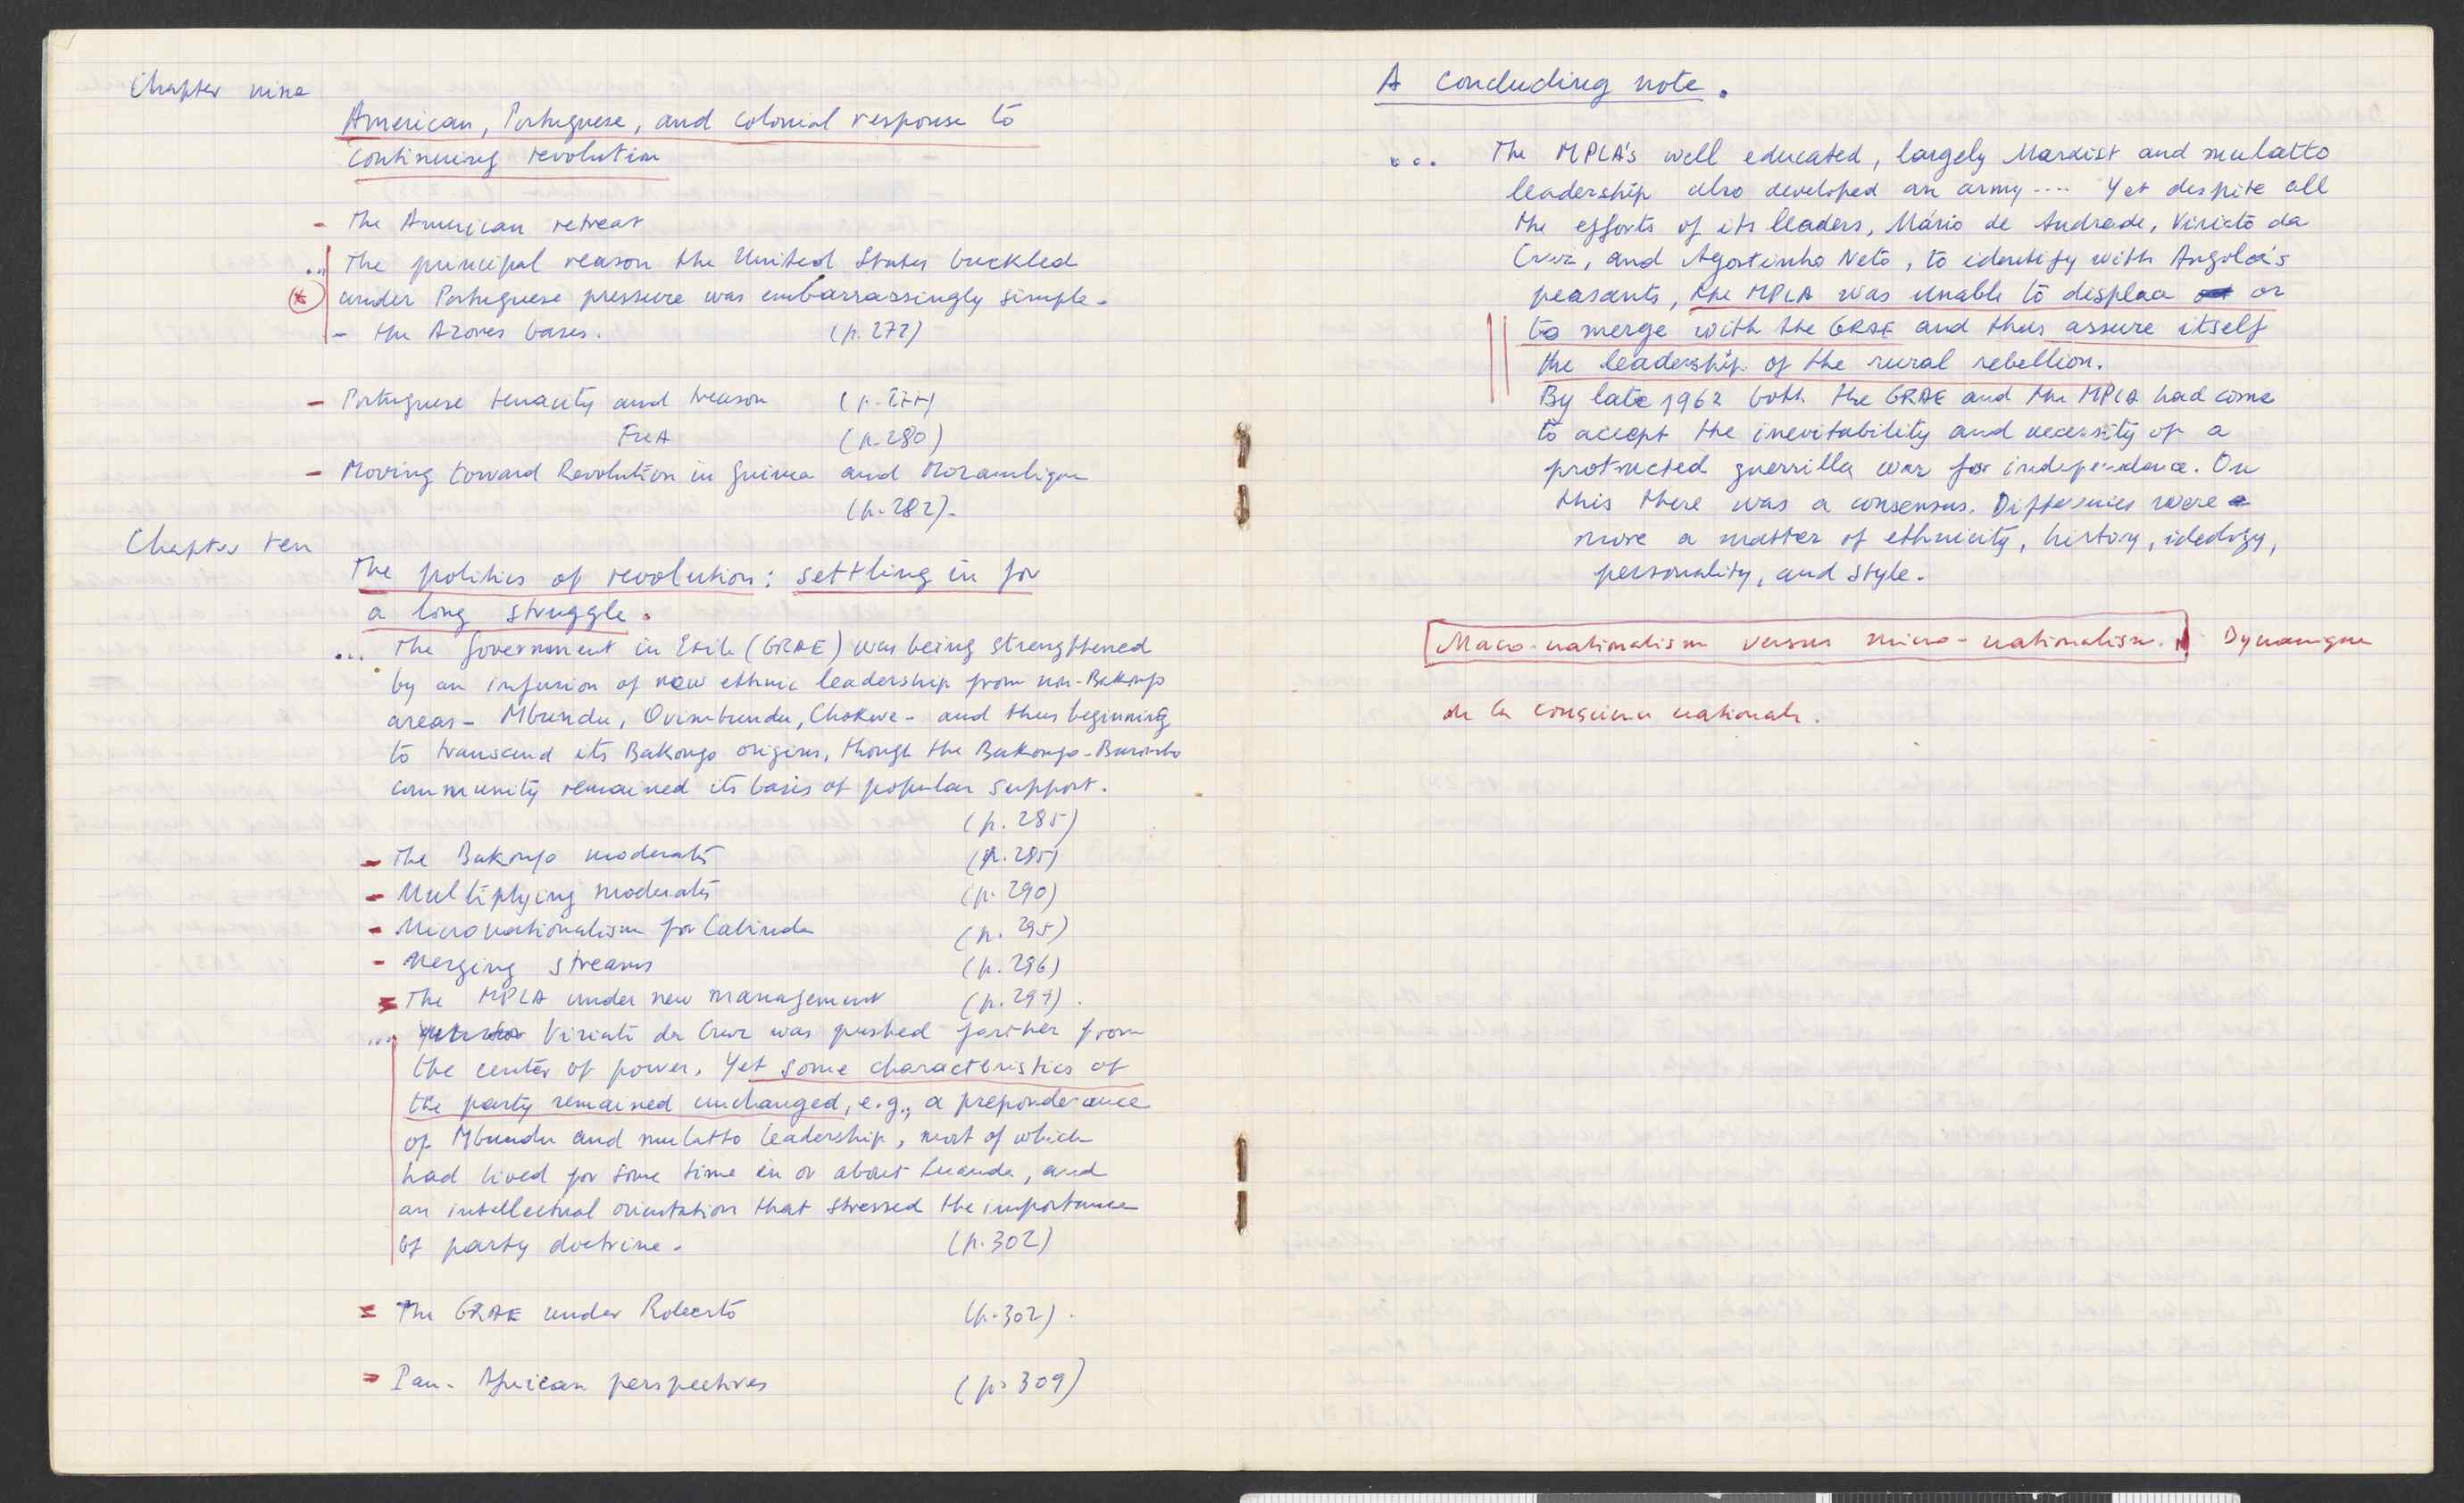 Chapter nine
American, Portuguese, and colonial response to
continuing revolution
- The American retreat
... The principal reason the United States buckled
under Portuguese pressure was embarrassingly simple -
- the Azores bases. (p. 272)
- Portuguese tenacity and treason
(p. 280)
- Moving toward Revolution in Guinea and Mozambique
(p. 282).
Chapter ten
The politics of revolution: settling in for
a long struggle.
... The Government in Exile (GRAE) was being strengthened
by an infusion of new ethnic leadership from non-Bakongo
areas - Mbundu, Ovimbundu, Chokwe - and thus beginning
to transcend its Bakongo origins, though the Bakongo-Bazombo
community remained its basis of popular support.
(p. 285)
- The Bakongo moderates (p. 285)
- Multiplying moderates (p. 290)
- Micronationalism for Cabinda (p. 295)
- Merging streams (p. 296)
- The MPLA under new management (p. 299).
... Viriato da Cruz was pushed farther from
the center of power. Yet some characteristics of
the party remained unchanged, e.g., a preponderance
of Mbundu and mulatto leadership, most of which
had lived for some time in or about Luanda, and
an intellectual orientation that stressed the importance
of party doctrine. (p. 302)
- The GRAE under Roberto (p. 302).
- Pan-African perspectives (p. 309)
A concluding note.
... The MPLA's well educated, largely Marxist and mulatto
leadership also developed an army .... Yet despite all
the efforts of its leaders, Mário de Andrade, Viriato da
Cruz, and Agostinho Neto, to identify with Angola's
peasants, the MPLA was unable to displace or
to merge with the GRAE and thus assure itself
the leadership of the rural rebellion.
By late 1962 both the GRAE and the MPLA had come
to accept the inevitability and necessity of a
protracted guerrilla war for independence. On
this there was a consensus. Differences were
more a matter of ethnicity, history, ideology,
personality, and style.
Macro-nationalism versus micro-nationalism. Dynamique
de la conscience nationale.